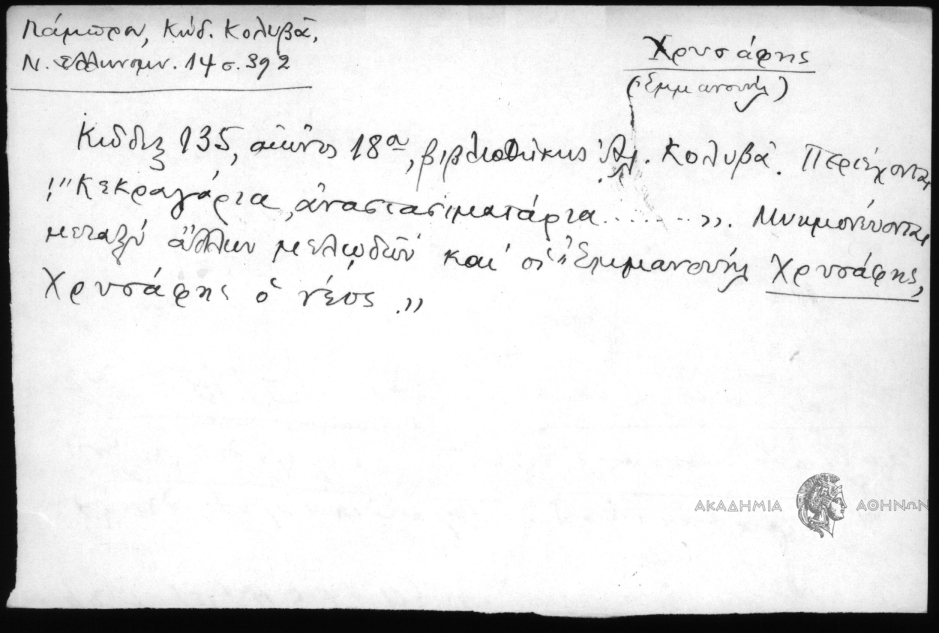 Λάμπρου, Κώδ. Κολυβᾶ,
Ν. Ἑλληνομν. 14 σ. 392
Χρυσάφης
(Ἐμμανουήλ)
Κώδιξ 135, αἰῶνος 18ου, βιβλιοθήκης Ἀλ. Κολυβᾶ. Περιέχονται
"Κεκραγάρια, ἀναστασιματάρια......". Μνημονεύονται
μεταξύ ἄλλων μελωδῶν καί οἱ "Ἐμμανουήλ Χρυσάφης,
Χρυσάφης ὁ νέος."
ΑΚΑΔΗΜΙΑ ΑΘΗΝΩΝ